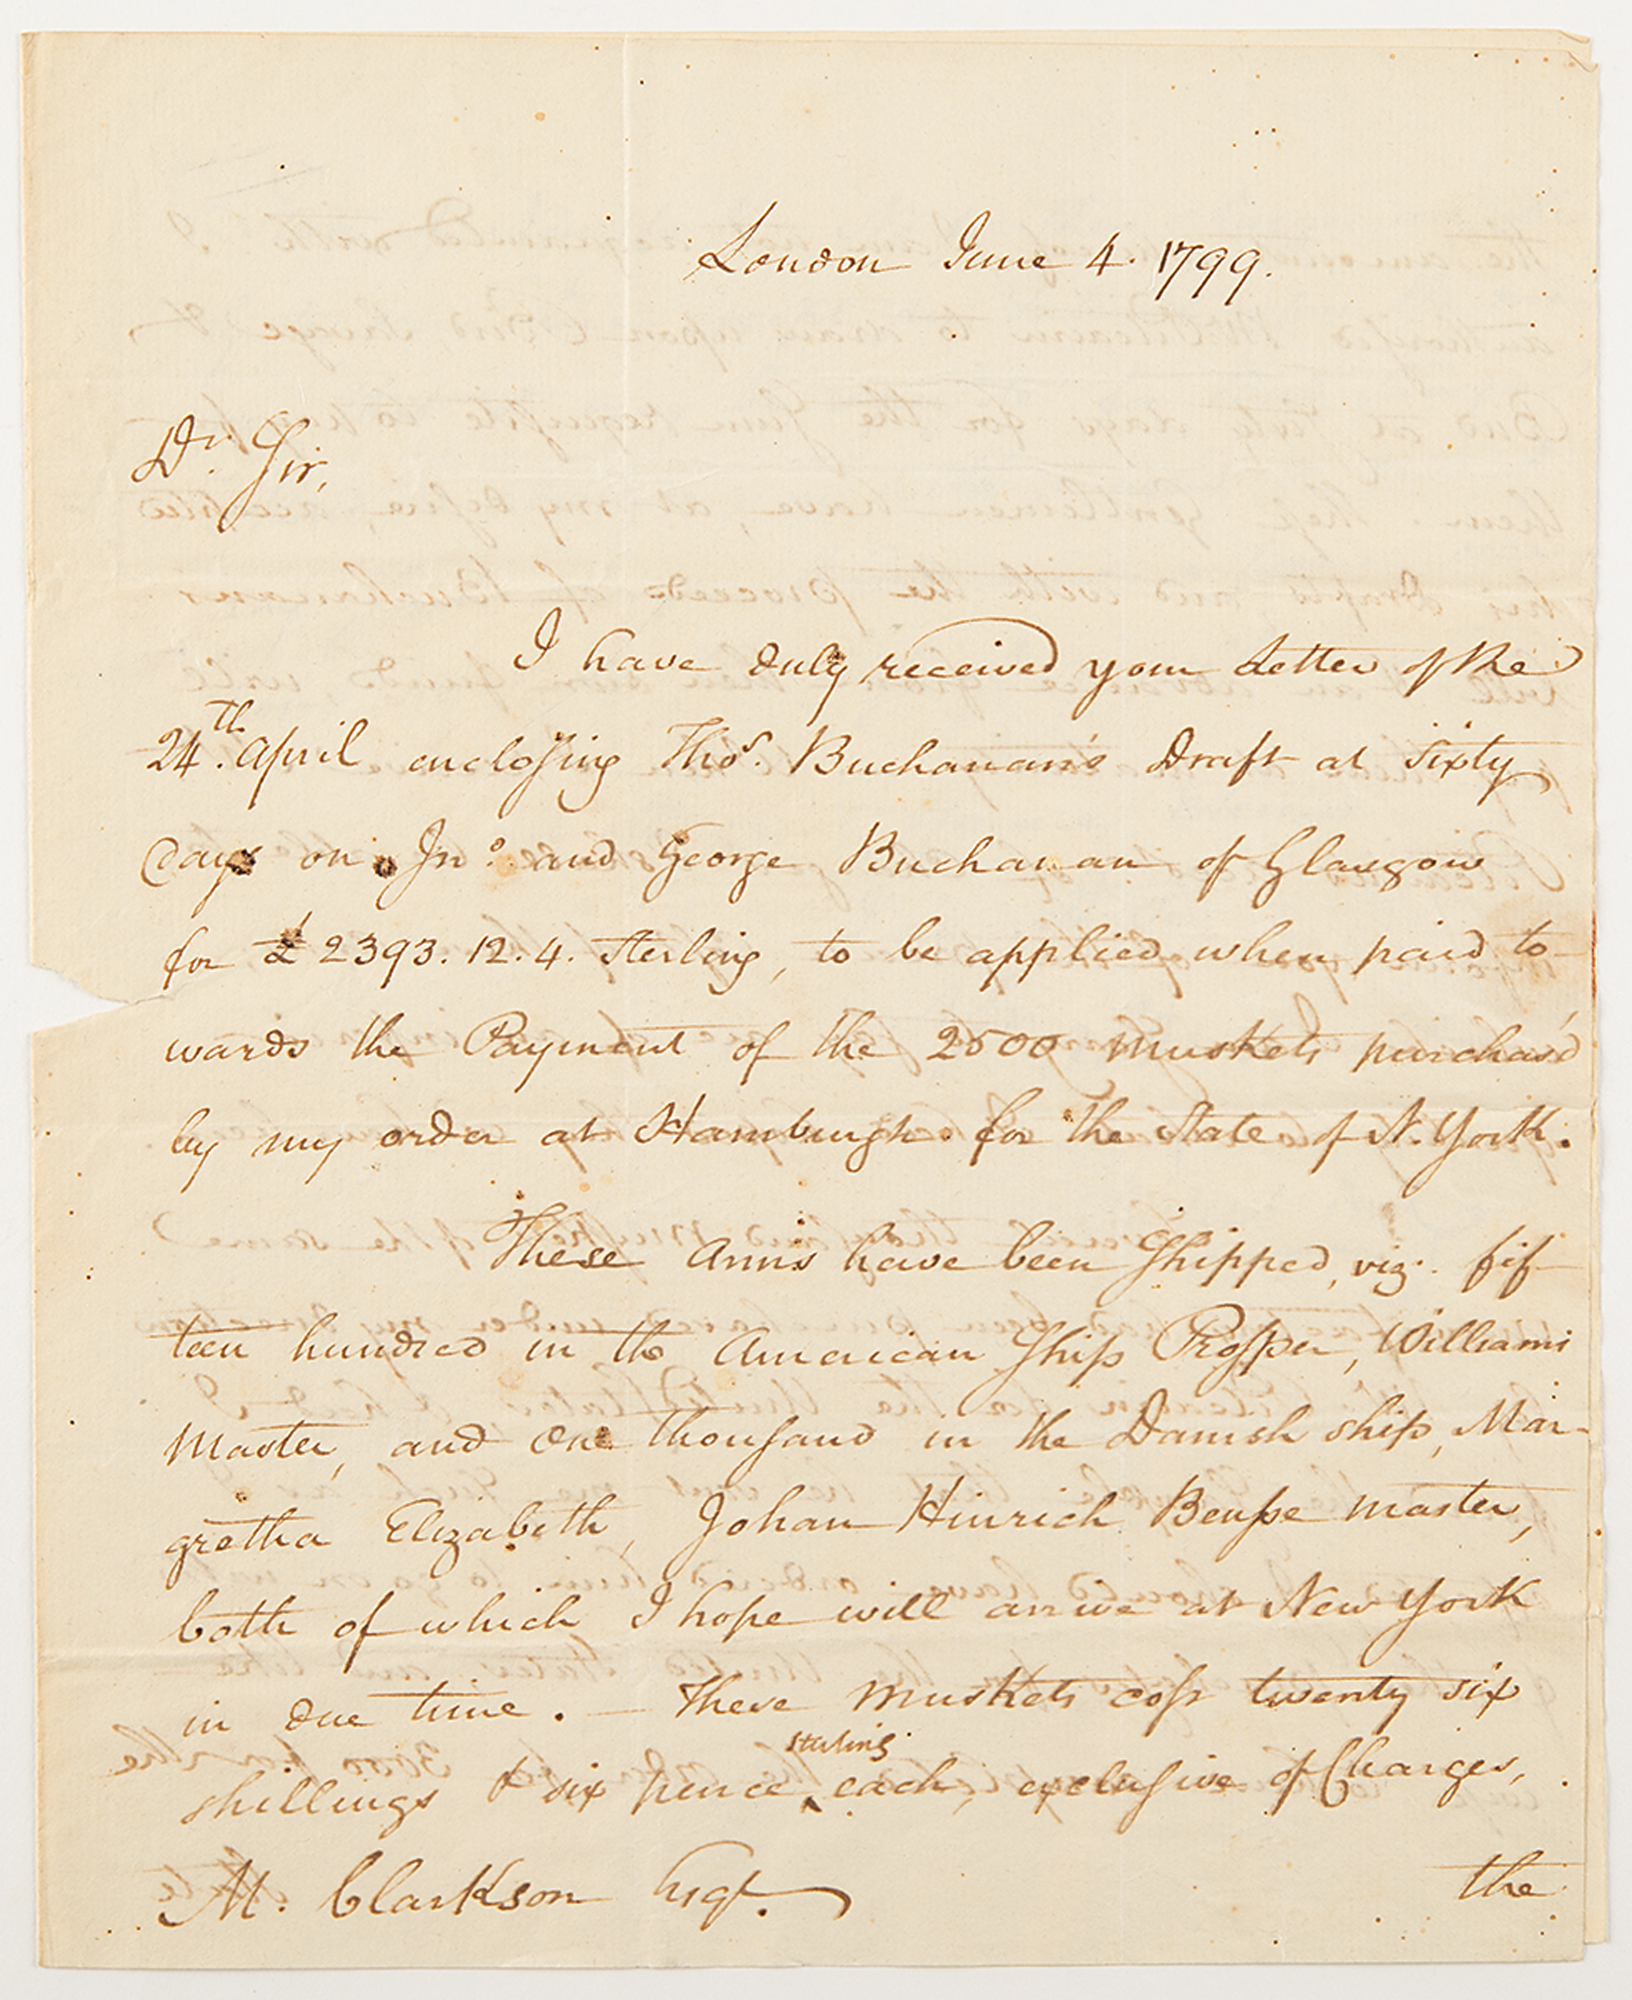 London June 4. 1799.
Dr. Sir,
I have duly received your Letter of the
24th. April enclosing Thos. Buchanan's Draft at sixty
Days on Jno. and George Buchanan of Glasgow
for £2393.12.4. Sterling, to be applied when paid to-
wards the Payment of the 2500 muskets purchas'd
by my order at Hamburgh for the State of N. York.
These Arms have been Shipped, viz. fif-
teen hundred in the American Ship Prosper, Williams
Master, and One thousand in the Danish ship, Mar-
gretha Elizabeth, Johan Hinrich Beusse master,
both of which I hope will arrive at New York
in due time. — These muskets cost twenty six
shillings & six pence sterling each, exclusive of Charges,
M. Clarkson Esqr.
the